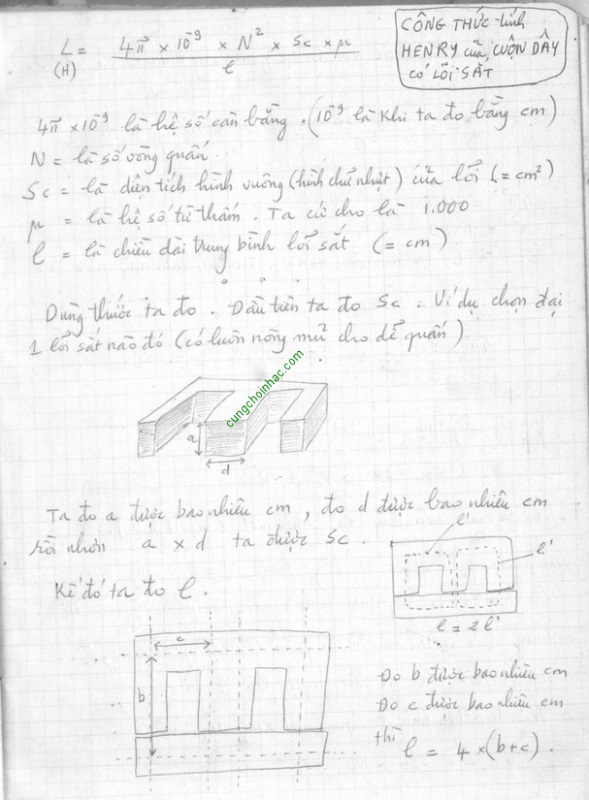 L = 4π × 10⁻⁹ × N² × Sc × μ
(H) l
CÔNG THỨC tính
HENRY của CUỘN DÂY
có LÕI SẮT
4π × 10⁻⁹ là hệ số cân bằng . (10⁻⁹ là khi ta đo bằng cm)
N = là số vòng quấn
Sc = là diện tích hình vuông (hình chữ nhựt) của lõi (= cm²)
μ = là hệ số từ thẩm . Ta cứ cho là 1.000
l = là chiều dài trung bình lõi sắt (= cm)
Dùng thước ta đo . Đầu tiên ta đo Sc . Ví dụ chọn đại
1 lõi sắt nào đó (có luôn nòng mủ cho dễ quấn)
cungchoinhac.com
a
d
Ta đo a được bao nhiêu cm , đo d được bao nhiêu cm
rồi nhơn a × d ta được Sc .
l'
l'
l = 2 l'
Kế đó ta đo l .
c
b
Đo b được bao nhiêu cm
Đo c được bao nhiêu cm
thì l = 4 × (b+c) .